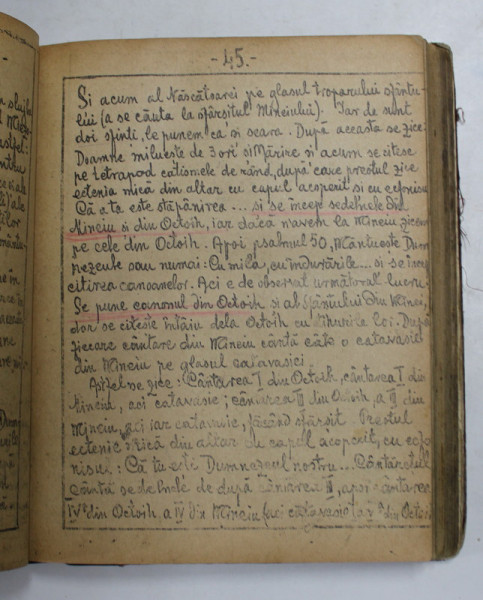 - 45. -
Și acum al Născătoarei pe glasul troparului sfântu-
lui (a se căuta la sfârșitul Mineiului). Iar de sunt
doi sfinți, le punem ca și seara. După aceasta se zice
Doamne milueste de 3 ori și Mărire și acum se citesc
pe tetrapod catismele de rând, după care preotul zice
ectenia mică din altar cu capul acoperit și cu ecfonisu
Că a ta este stăpânirea ... și se încep sedelnele din
Mineiu și din Octoih, iar dacă n'avem la Mineiu zicem
pe cele din Octoih. Apoi psalmul 50, Mântuește Dum
nezeule sau numai: Cu mila, cu îndurările... și se începe
citirea canoanelor. Aci e de observat următorul lucru
Se pune canonul din Octoih și al Sfântului din Minei,
dar se citește întâiu dela Octoih cu stihurile lor. După
fiecare cântare din Mineiu cântă câte o catavasie
din Mineiu pe glasul catavasici
Astfel se zice: Cântarea I din Octoih, cântarea I din
Mineiu, aci catavasie; cântarea III din Octoih, a III din
Mineiu, aci iar catavasie, făcând sfârșit. Preotul
ectenie mică din altar cu capul acoperit, cu ecfo
nisu: Că tu ești Dumnezeul nostru ... Cântărețul
cântă sedelnele de după cântarea III, apoi cântarea
IV din Octoih, a IV din Mineiu (aci catavasie) a V din Octoih